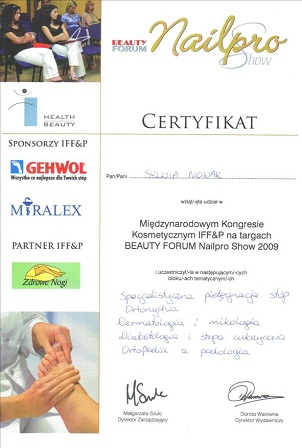 BEAUTY FORUM Nailpro Show
HEALTH
BEAUTY
CERTYFIKAT
SPONSORZY IFF&P
GEHWOL
Wszystko co najlepsze dla Twoich stóp
MIRALEX
PARTNER IFF&P
Zdrowe Nogi
Pan/Pani SYLWIA NOWAK
wziął/-ęła udział w
Międzynarodowym Kongresie
Kosmetycznym IFF&P na targach
BEAUTY FORUM Nailpro Show 2009
i uczestniczył/-ła w następującym/-ych
bloku/-ach tematycznym/-ch
Specjalistyczna pielęgnacja stóp
Ortonyxia
Dermatologia i mikologia
Diabetologia i stopa cukrzycowa
Ortopedia a podologia
Małgorzata Szulc
Dyrektor Zarządzający
Dorota Warowna
Dyrektor Wydawniczy